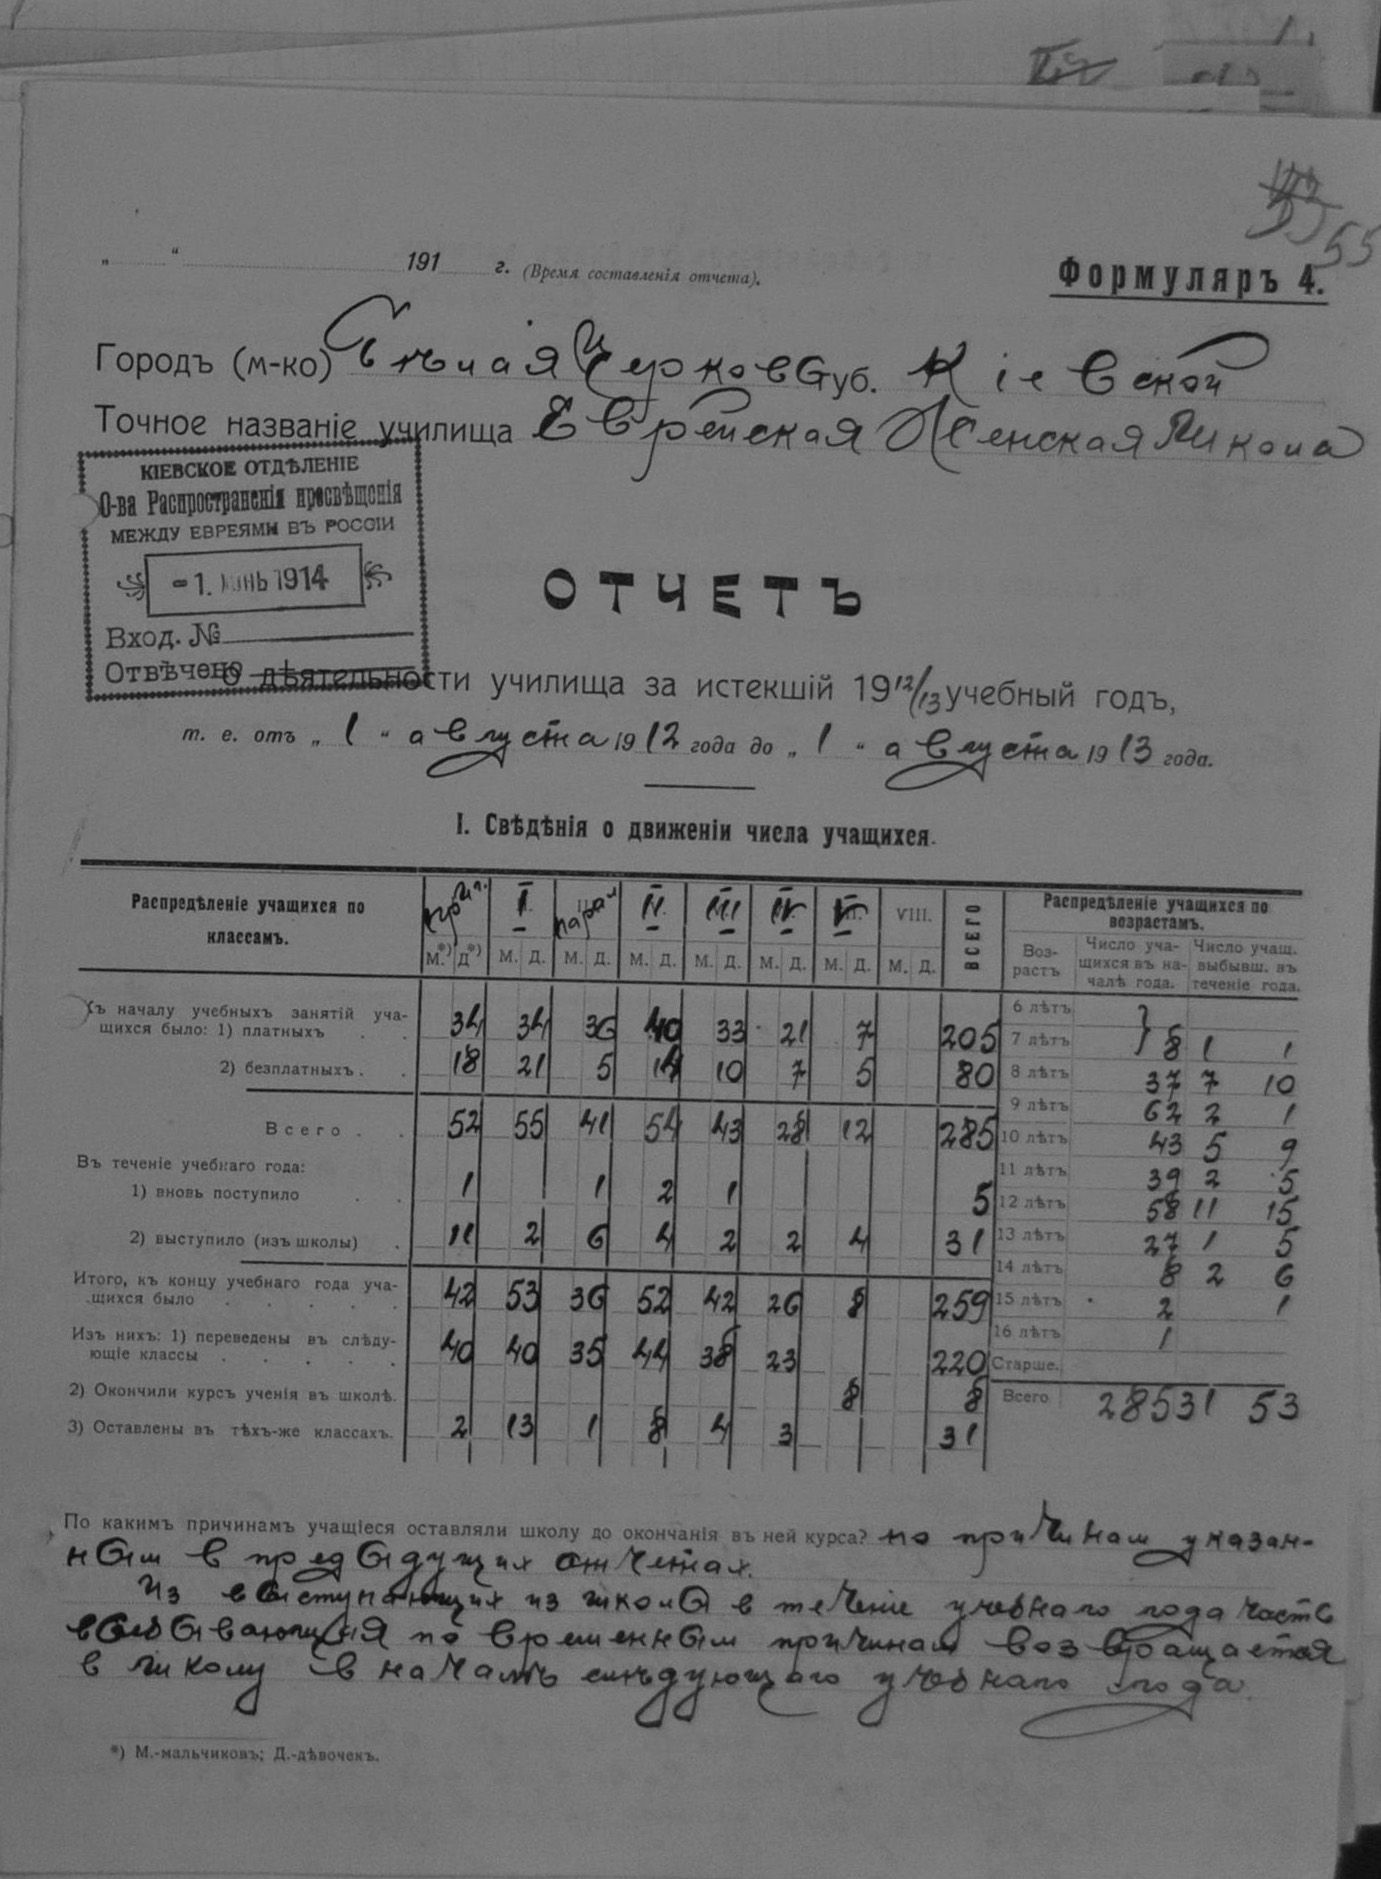 55
„ “ 191 г. (Время составленія отчета).
Формуляръ 4.
Городъ (м-ко) Бѣлая Церковь Губ. Кіевской
Точное названіе училища Еврейская Женская Школа
КІЕВСКОЕ ОТДѢЛЕНІЕ
О-ва Распространенія просвѣщенія
МЕЖДУ ЕВРЕЯМИ ВЪ РОССІИ
-1. ІЮНЬ 1914
Вход. №
Отвѣчено
ОТЧЕТЪ
О дѣятельности училища за истекшій 1912/13 учебный годъ,
т. е. отъ „ 1 “ августа 1912 года до „ 1 “ августа 1913 года.
I. Свѣдѣнія о движеніи числа учащихся.
Распредѣленіе учащихся по классамъ. I парал II III IV V VIII. ВСЕГО Распредѣленіе учащихся по возрастамъ.
М.*) Д*) М. Д. М. Д. М. Д. М. Д. М. Д. М. Д. М. Д. Воз-растъ Число уча-щихся въ на-чалѣ года. Число учащ. выбывш. въ теченіе года.
Къ началу учебныхъ занятій уча-
щихся было: 1) платныхъ . . 34 34 36 40 33 21 7 205
2) безплатныхъ . . 18 21 5 14 10 7 5 80
Всего . . 52 55 41 54 43 28 12 285
Въ теченіе учебнаго года:
1) вновь поступило . . 1 1 2 1 5
2) выступило (изъ школы) . 11 2 6 4 2 2 4 31
Итого, къ концу учебнаго года уча-
щихся было . . . . . 42 53 36 52 42 26 8 259
Изъ нихъ: 1) переведены въ слѣду-
ющіе классы . . . . . 40 40 35 44 38 23 220
2) Окончили курсъ ученія въ школѣ. 8 8
3) Оставлены въ тѣхъ-же классахъ. 2 13 1 8 4 3 31
6 лѣтъ }
7 лѣтъ 8 1 1
8 лѣтъ 37 7 10
9 лѣтъ 62 2 1
10 лѣтъ 43 5 9
11 лѣтъ 39 2 5
12 лѣтъ 58 11 15
13 лѣтъ 27 1 5
14 лѣтъ 8 2 6
15 лѣтъ 2 1
16 лѣтъ 1
Старше.
Всего 285 31 53
По какимъ причинамъ учащіеся оставляли школу до окончанія въ ней курса? по причинам указан-
ным в предыдущих отчетах.
Из выступающих из школы в теченіе учебнаго года часть
выбывающая по временным причинам возвращается
в школу в началѣ слѣдующаго учебнаго года.
*) М.-мальчиковъ; Д.-дѣвочекъ.